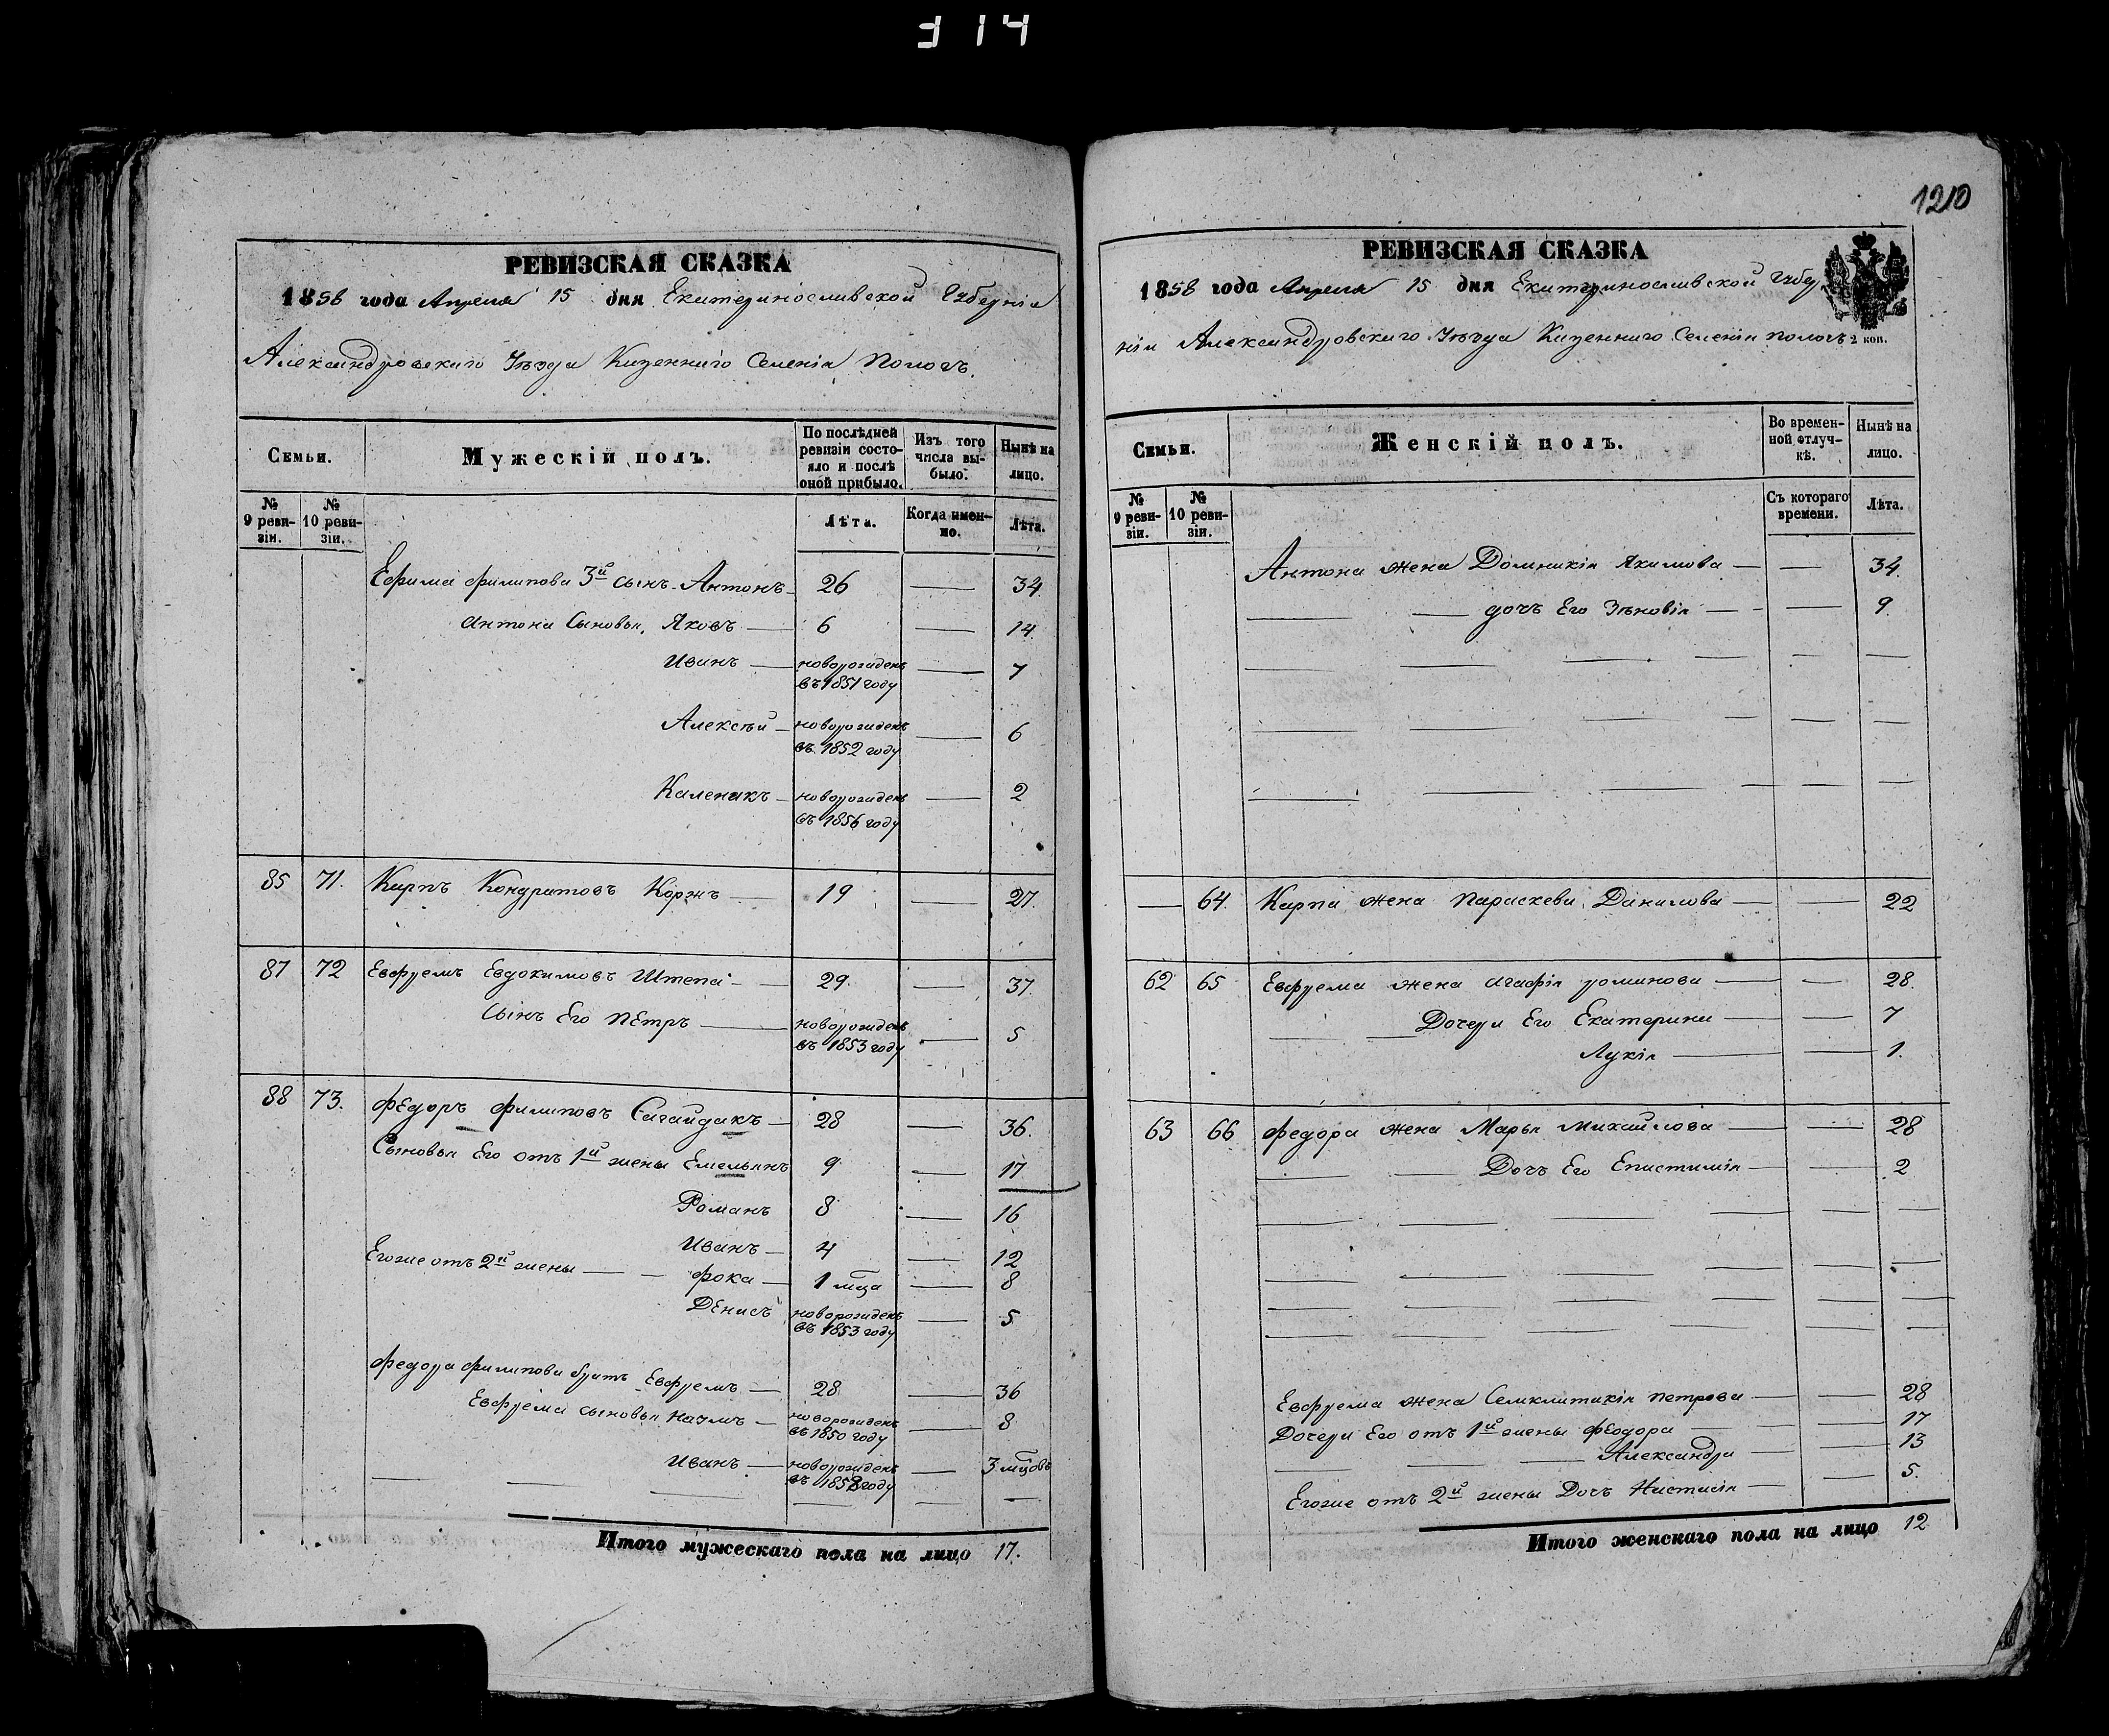 314
1210
РЕВИЗСКАЯ СКАЗКА
1858 года Апреля 15 дня Екатеринославской Губерніи
Александровскаго Уѣзда Казеннаго Селенія Пологъ.
Семьи.
Мужескій полъ.
По послѣдней ревизіи состояло и послѣ оной прибыло.
Изъ того числа выбыло.
Нынѣ на лицо.
№ 9 ревизіи.
№ 10 ревизіи.
Лѣта.
Когда именно.
Лѣта.
Ефима Филипова 3й сынъ Антонъ 26 — 34.
Антона Сыновья, Яковъ — 6 — 14
Иванъ — новорожденъ въ 1851 году — 7
Алексѣй — новорожденъ въ 1852 году — 6
Каленикъ — новорожденъ въ 1856 году — 2
85 71. Карпъ Кондратовъ Коржъ — 19 — 27.
87 72 Евфремъ Евдокимовъ Штепа — 29. — 37.
Сынъ Его Петръ — новорожденъ въ 1853 году — 5
88 73. Федоръ Филиповъ Сагайдакъ — 28 — 36.
Сыновья Его отъ 1й жены Емельянъ 9 — 17
Романъ 8 — 16
Иванъ — 4 — 12
Егоже отъ 2й жены — — Фока — 1 мца — 8
Денисъ новорожденъ въ 1853 году — 5
Федора Филипова братъ Евфремъ — 28 — 36
Евфрема сыновья Наумъ — новорожденъ въ 1850 году — 8
Иванъ — новорожденъ въ 1858 году — 3 мцовъ
Итого мужескаго пола на лицо 17.
РЕВИЗСКАЯ СКАЗКА
1858 года Апреля 15 дня Екатеринославской Губер
ніи Александровскаго Уѣзда Казеннаго Селенія Пологъ 2 коп.
Семьи.
Женскій полъ.
Во временной отлучкѣ.
Нынѣ на лицо.
№ 9 ревизіи.
№ 10 ревизіи.
Съ котораго времени.
Лѣта.
Антона жена Домникія Якимова — — 34.
— — дочь Его Зѣновія — — 9.
— 64. Карпа жена Параскева Данилова — — 22
62 65 Евфрема жена Агафія Романова — — 28.
— — Дочери Его Екатерина — — 7
Лукія — — 1.
63 66 Федора жена Марья Михайлова — — 28
— — Дочь Его Епистимія — — 2
Евфрема жена Семклитикія Петрова — — 28
Дочери Его отъ 1й жены Феодора — — 17
— — — Александра — — 13
Егоже отъ 2й жены Дочь Настасія — — 5.
Итого женскаго пола на лицо 12